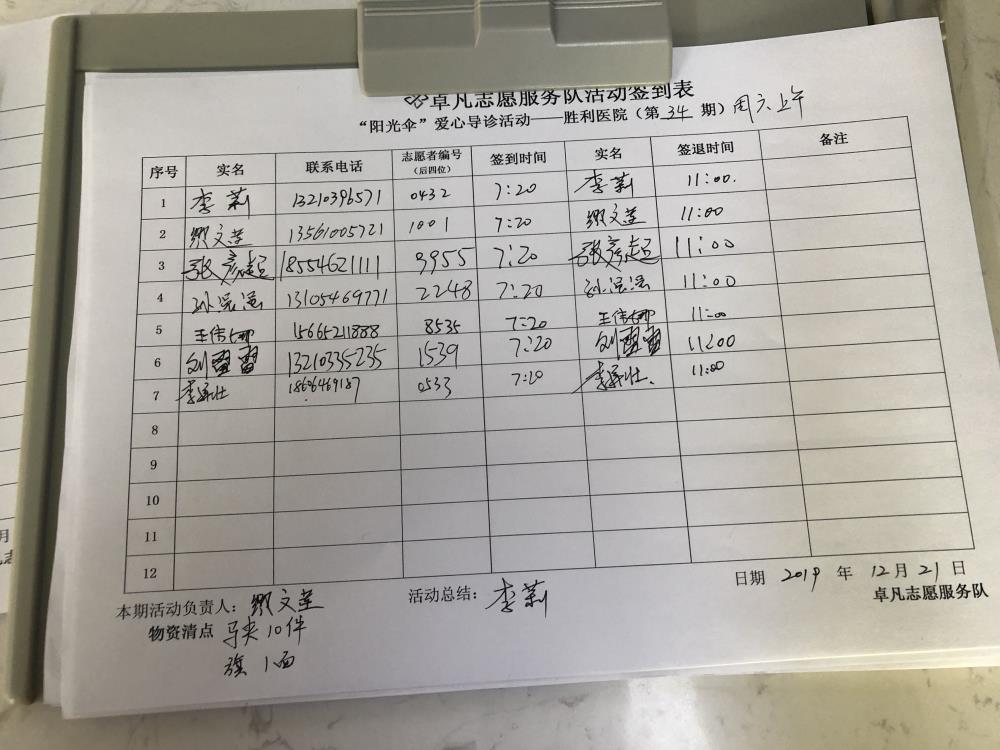 卓凡志愿服务队活动签到表
“阳光伞”爱心导诊活动——胜利医院（第 34 期）周六上午
序号 实名 联系电话 志愿者编号（后四位） 签到时间 实名 签退时间 备注
1 李莉 13210396571 0432 7:20 李莉 11:00.
2 文莲 13561005721 1001 7:20 文莲 11:00
3 张彦超 18554621111 9955 7:20 张彦超 11:00
4 孙 13105469771 2248 7:20 孙 11:00
5 王伟娜 15665211888 8535 7:20 王伟娜 11:00
6 刘雷雷 13210335235 1539 7:20 刘雷雷 11:00
7 李 18606469187 0533 7:20 李 11:00
8
9
10
11
12
日期 2019 年 12 月 21 日
本期活动负责人： 文莲 活动总结： 李莉
卓凡志愿服务队
物资清点 马夹10件
旗 1面